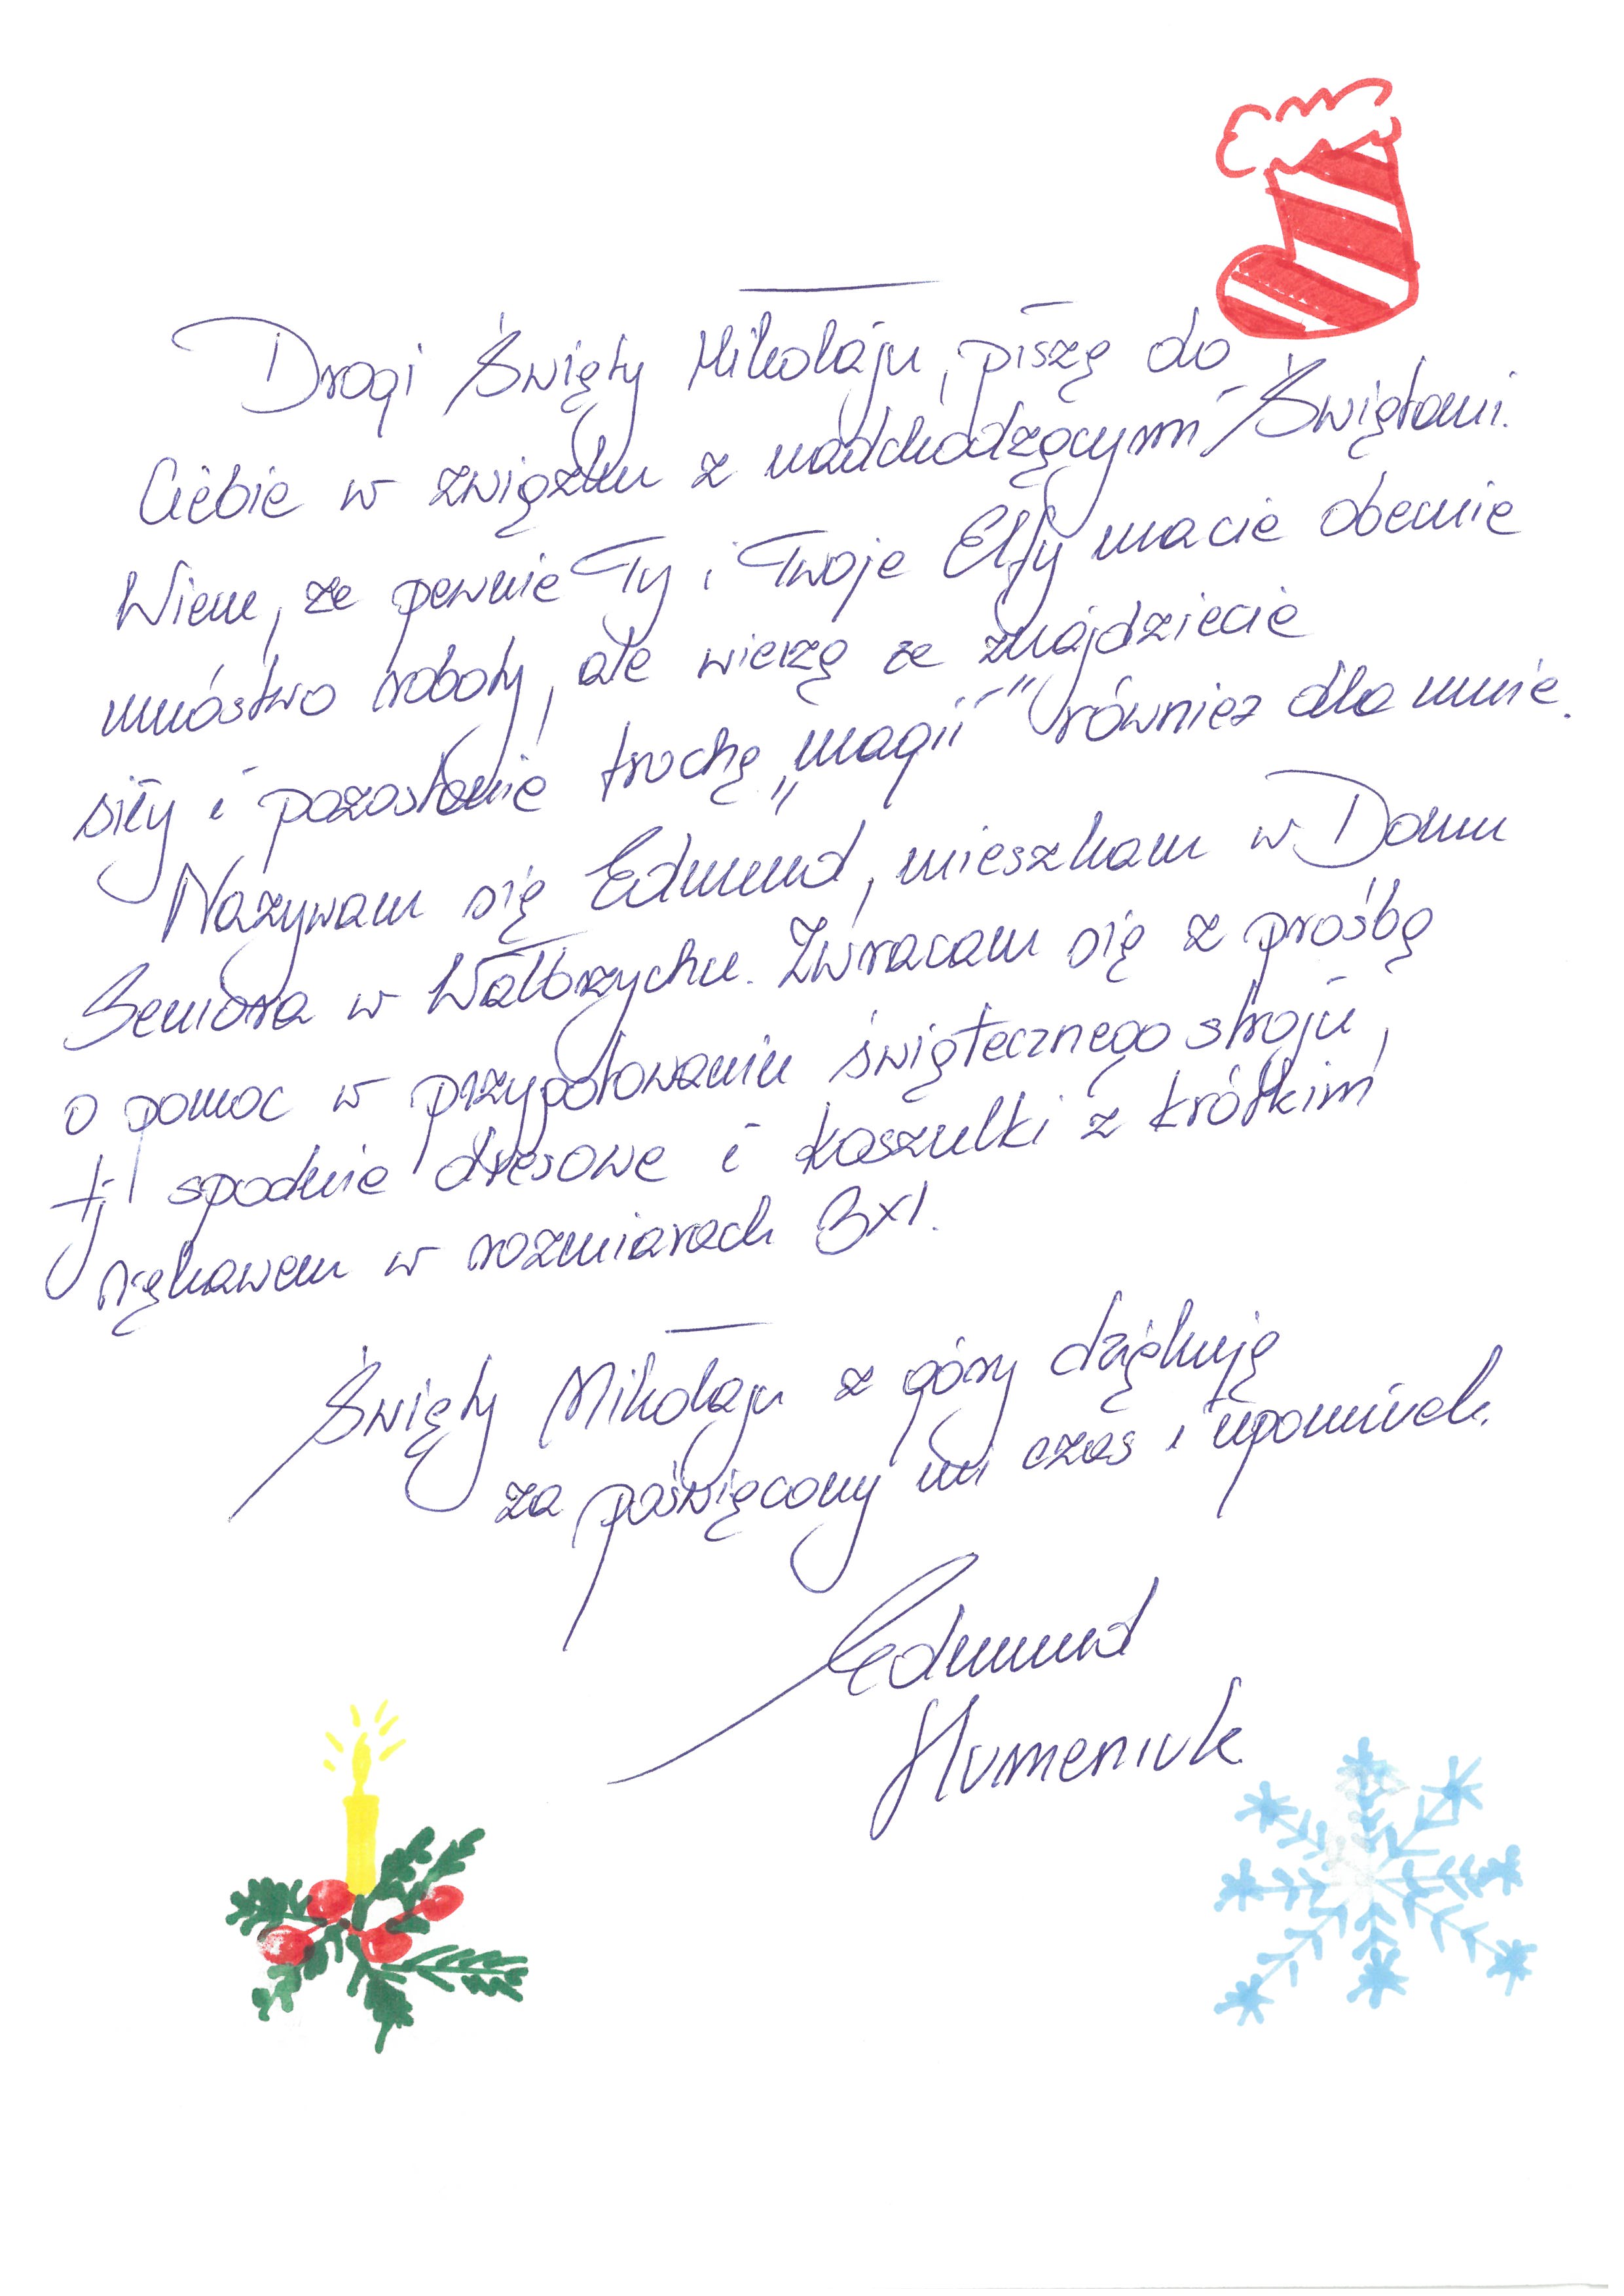 Drogi Święty Mikołaju, piszę do
Ciebie w związku z nadchodzącymi Świętami.
Wiem, że pewnie Ty i Twoje Elfy macie obecnie
mnóstwo roboty, ale wierzę że znajdziecie
siły i pozostanie trochę „magii" również dla mnie.
Nazywam się Edmund, mieszkam w Domu
Seniora w Wałbrzychu. Zwracam się z prośbą
o pomoc w przygotowaniu świątecznego stroju,
tj spodnie dresowe i koszulki z krótkim
rękawem w rozmiarach 3xl.
Święty Mikołaju z góry dziękuję
za poświęcony mi czas i upominek.
Edmund
Humeniuk